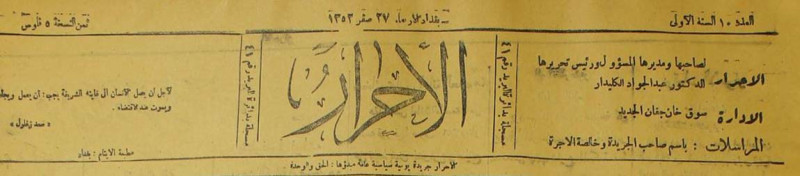 العدد ١٠ السنة الاولى
بغداد الاربعاء ٢٧ صفر ١٣٥٣
ثمن النسخة ٥ فلوس
الاحرار لصاحبها ومديرها المسؤول ورئيس تحريرها
الدكتور عبدالجواد الكليدار
الادارة سوق خان جغان الجديد
المراسلات : باسم صاحب الجريدة وخالصة الاجرة
مسجلة بدائرة البريد رقم ٤١
الأحرار
مسجلة بدائرة البريد رقم ٤١
لاجل ان يصل الانسان الى غايته الشريفة يجب : ان يعمل
ويموت عند الاقتضاء .
« سعد زغلول »
مطبعة الايتام : بغداد
الاحرار جريدة يومية سياسية عامة مبدؤها : الحق والوحدة .